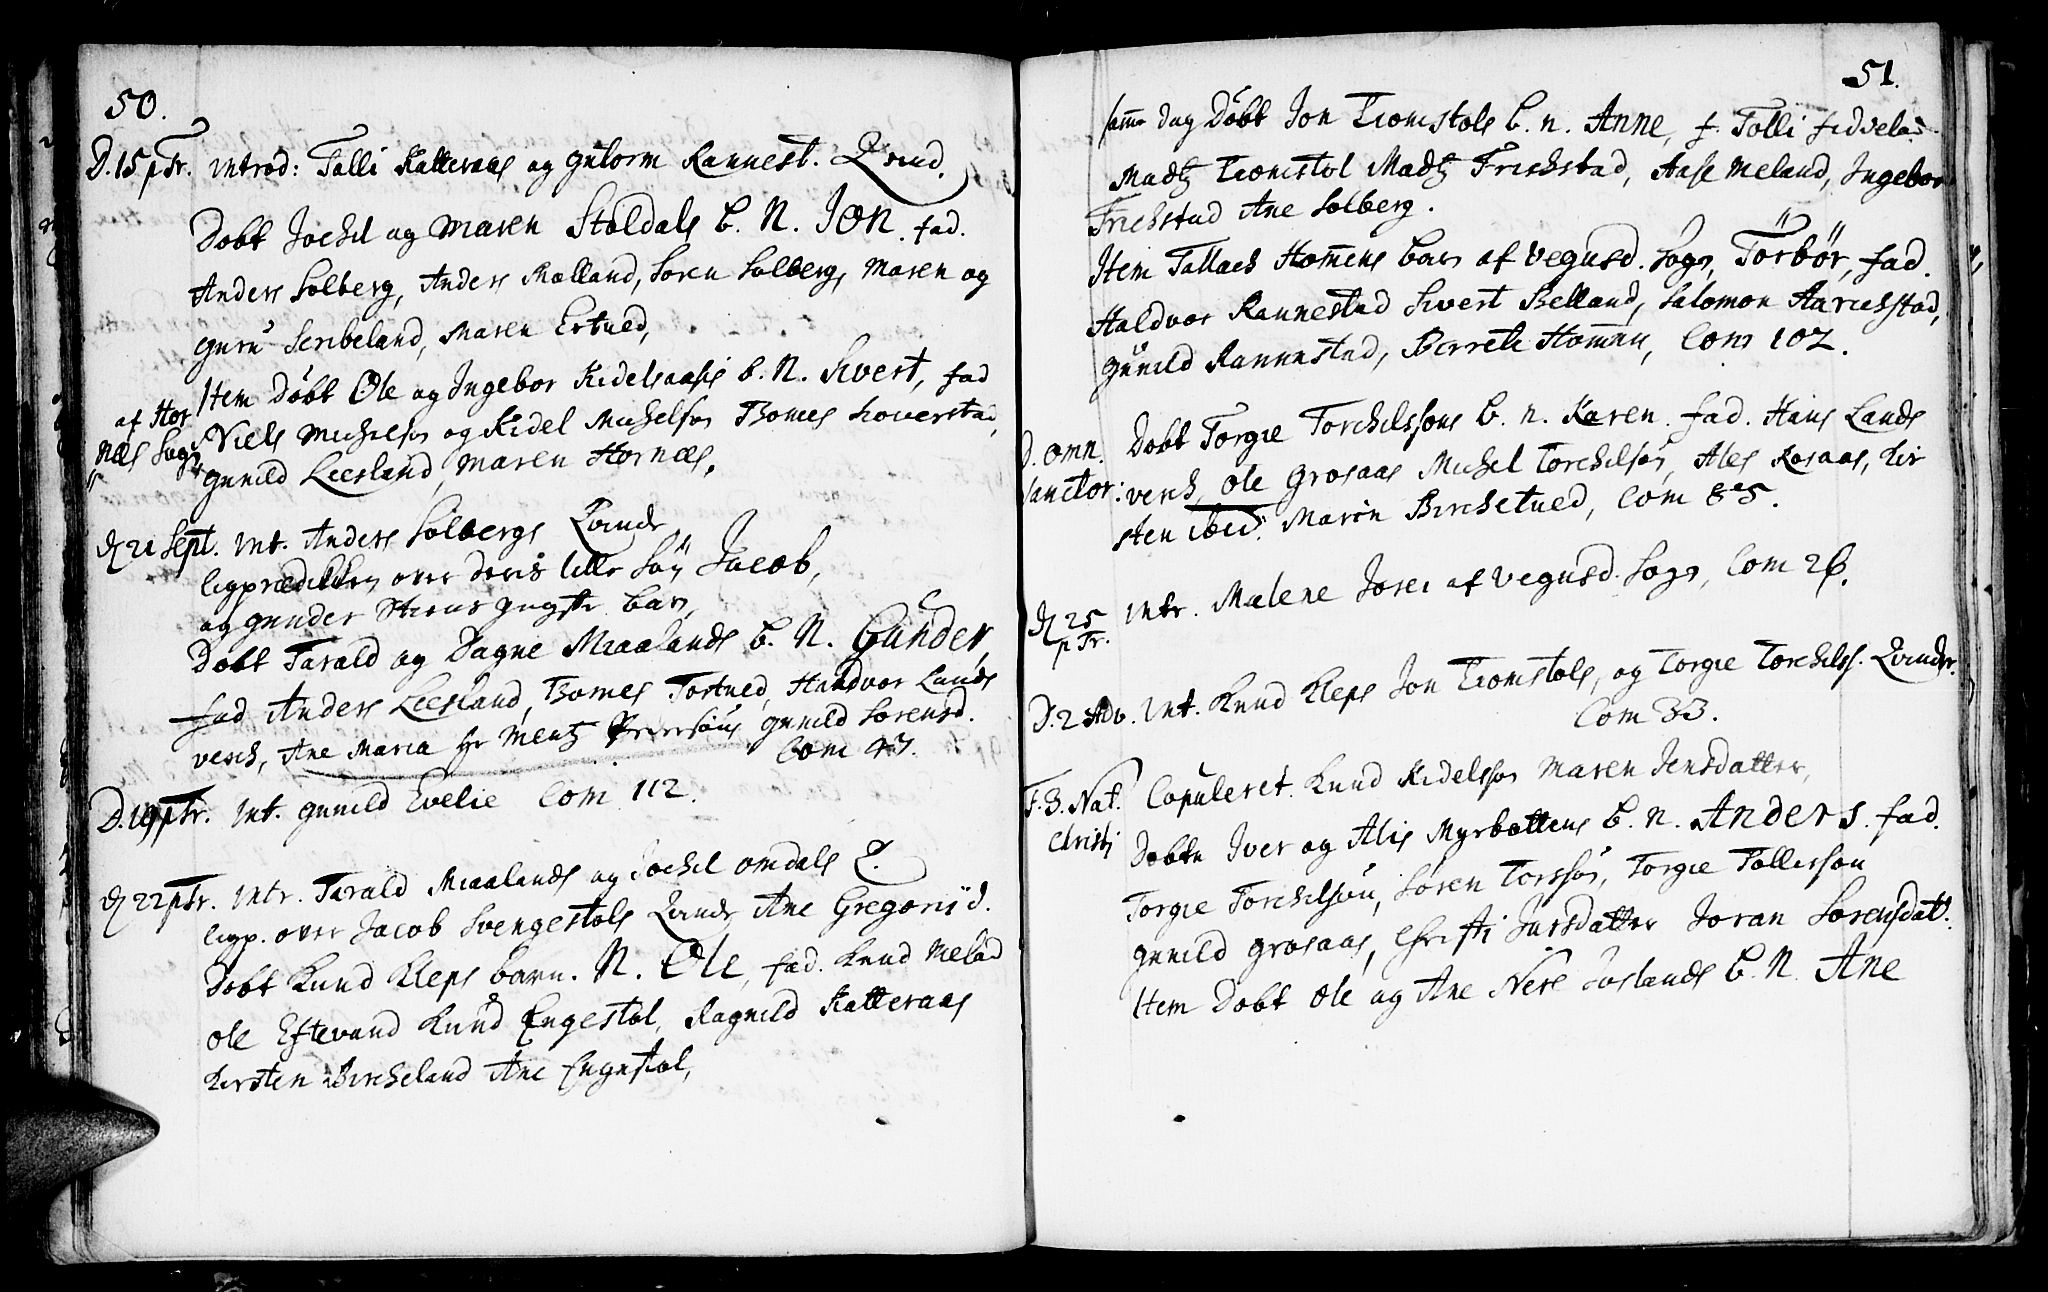 50.
D. 15 p Tr. introd: Tolli Katteraas og Gutorm Rannest. Qvind.
Döbt Jochel og Maren Stoldals b. N. Jon. fad.
Anders Solberg, Anders Rælland, Sören Solberg, Maren og
Guru Scribeland, Maren Ertved,
Item Döbt Ole og Ingebor Kidelsaasis b. N. Sivert, fad
af Hor
Niels Michelsøn og Kidel Michelsøn Thomes Hoverstad,
næs Sogn
Gunild Leesland, Maren Hornæs,
D 21 Sept. int. Anders Solbergs Qvinde
ligprædikken over deris lille Søn Jacob,
og Gunder Stiens yngste barn,
Döbt Tarald og Dagne Miaalands b. N. Gunder,
fad Anders Leesland, Thomes Tortved, Haldvor Lands
verch, Ane Maria hr Mentz Pedersøns Gunild Sørensd.
Com 47.
D. 19 p Tr. int. Gunild Evelie Com 112.
D 22 p Tr. intr. Tarald Miaalands og Jochel Omdals Q.
ligp. over Jacob Svengestols Qvinde Ane Gregorijd.
Döbt Knud Kleps barn. N. Ole, fad. Knud Melad
Ole Eftevand Knud Engestol, Ragnild Katteraas
Kirsten Bircheland Ane Engestol,
51.
samme dag Döbt Jon Tromstols b. n. Anne, f. Tolli
Madtz Tromstol Madtz Frichstad, Aase Meland, Ingebor
Frichstad Ane Solberg.
Item Tallach Hommens barn af Vegusd. Sogn, Törbör, fad.
Haldvor Rannestad Sivert Belland, Salomon Aarichstad,
Gunild Rannestad, Berrete Hommen, Com 102.
D. Omn. Döbt Torgie Torchelssøns b. n. Karen. fad. Hans Lands
Sanctor: verch, Ole Grosaas Michel Torchelsøn, Ales Rosaas, Kir
sten ibid. Maren Birchetved, Com 85.
D 25 intr. Malene Jorei af Vegusd. Sogn, Com 26.
p Tr.
D. 2 Adv. int. Knud Kleps Jon Tromstols, og Torgie Torchelss. Qvinder.
Com 33.
F. 3. Nat. Copuleret Knud Kidelssøn Maren Jensdatter,
Christi Döbte Iver og Alis Myrbottens b. n. Anders. fad.
Torgie Torchelsøn, Sören Torssøn, Torgie Tollerson
Gunild Grosaas, Christi Jensdatter Joran Sørensdatt.
Item Döbt Ole og Ane Nere Joslands b. N. Ane